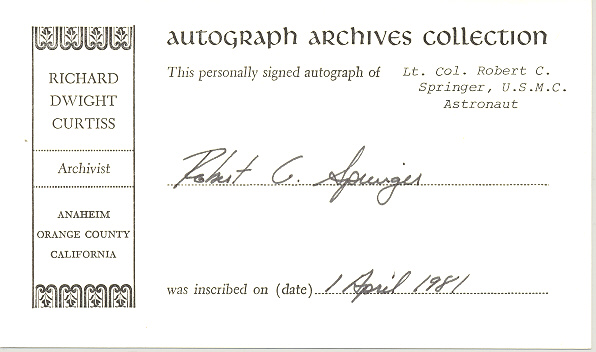 AUTOGRAPH ARCHIVES COLLECTION
RICHARD
DWIGHT
CURTISS
Archivist
ANAHEIM
ORANGE COUNTY
CALIFORNIA
This personally signed autograph of Lt. Col. Robert C.
Springer, U.S.M.C.
Astronaut
Robert C. Springer
was inscribed on (date) 1 April 1981